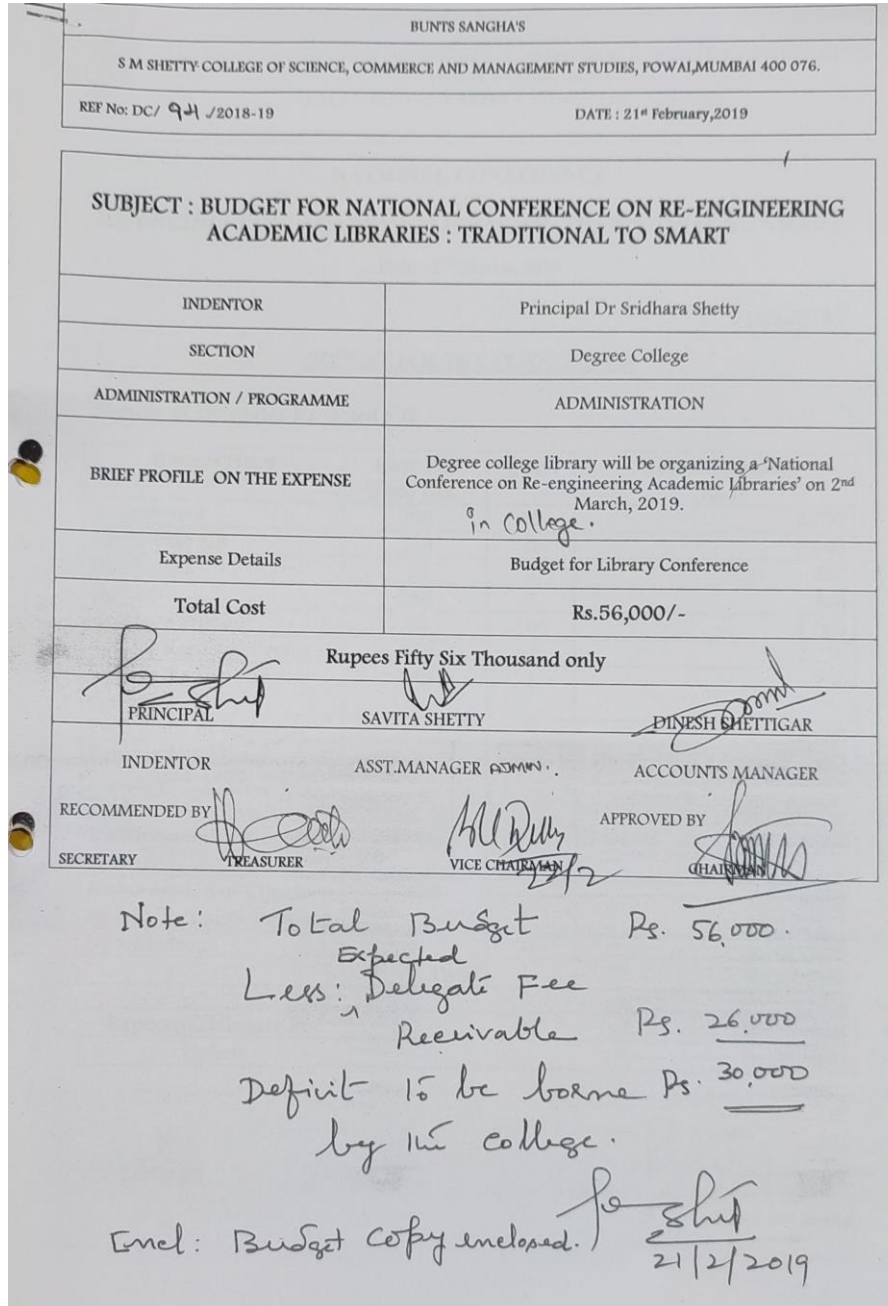 BUNTS SANGHA'S
S M SHETTY COLLEGE OF SCIENCE, COMMERCE AND MANAGEMENT STUDIES, POWAI,MUMBAI 400 076.
REF No: DC/ 94 /2018-19 DATE : 21st February,2019
SUBJECT : BUDGET FOR NATIONAL CONFERENCE ON RE-ENGINEERING
ACADEMIC LIBRARIES : TRADITIONAL TO SMART
INDENTOR Principal Dr Sridhara Shetty
SECTION Degree College
ADMINISTRATION / PROGRAMME ADMINISTRATION
BRIEF PROFILE ON THE EXPENSE
Degree college library will be organizing a 'National
Conference on Re-engineering Academic Libraries' on 2nd
March, 2019.
in college.
Expense Details Budget for Library Conference
Total Cost Rs.56,000/-
Rupees Fifty Six Thousand only
PRINCIPAL SAVITA SHETTY DINESH SHETTIGAR
INDENTOR ASST.MANAGER ADMIN. ACCOUNTS MANAGER
RECOMMENDED BY APPROVED BY
SECRETARY TREASURER VICE CHAIRMAN CHAIRMAN
22/2
Note: Total Budget Rs. 56,000.
Expected
Less: Delegate Fee
Receivable Rs. 26,000
Deficit to be borne Rs. 30,000
by the college.
Encl: Budget copy enclosed.
21/2/2019